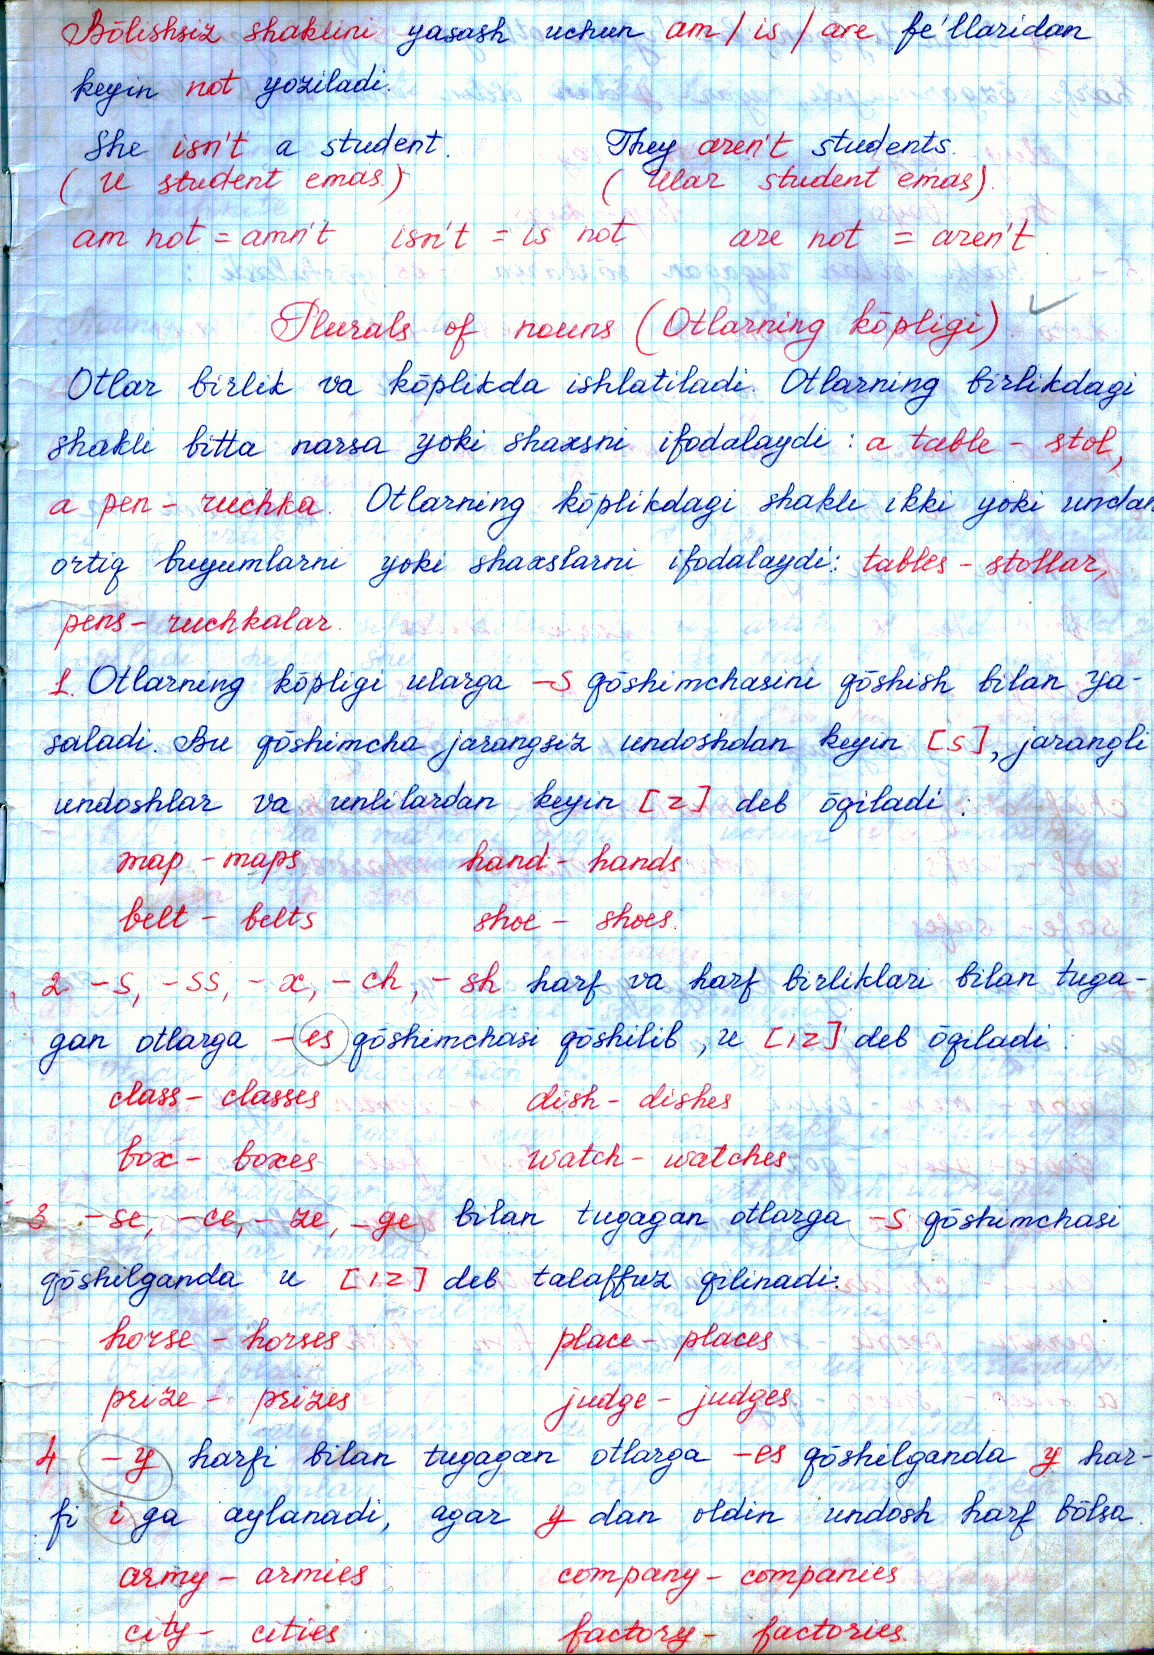 Bōlishsiz shaklini yasash uchun am / is / are fe'llaridan
keyin not yoziladi.
She isn't a student. They aren't students.
(U student emas.) (Ular student emas).
am not = amn't isn't = is not are not = aren't
Plurals of nouns (Otlarning kōpligi)
Otlar birlik va kōplikda ishlatiladi. Otlarning birlikdagi
shakli bitta narsa yoki shaxsni ifodalaydi: a table - stol,
a pen - ruchka. Otlarning kōplikdagi shakli ikki yoki undan
ortiq buyumlarni yoki shaxslarni ifodalaydi: tables - stollar,
pens - ruchkalar.
1. Otlarning kōpligi ularga -s qōshimchasini qōshish bilan ya-
saladi. Bu qōshimcha jarangsiz undoshdan keyin [s], jarangli
undoshlar va unlilardan keyin [z] deb ōqiladi:
map - maps hand - hands
belt - belts shoe - shoes.
2 -s, -ss, -x, -ch, -sh harf va harf birliklari bilan tuga-
gan otlarga -es qōshimchasi qōshilib, u [iz] deb ōqiladi:
class - classes dish - dishes
box - boxes watch - watches
3 -se, -ce, -ze, -ge bilan tugagan otlarga -s qōshimchasi
qōshilganda u [iz] deb talaffuz qilinadi:
horse - horses place - places
prize - prizes judge - judges
4. -y harfi bilan tugagan otlarga -es qōshilganda y har-
fi i ga aylanadi, agar y dan oldin undosh harf bōlsa.
army - armies company - companies
city - cities factory - factories.